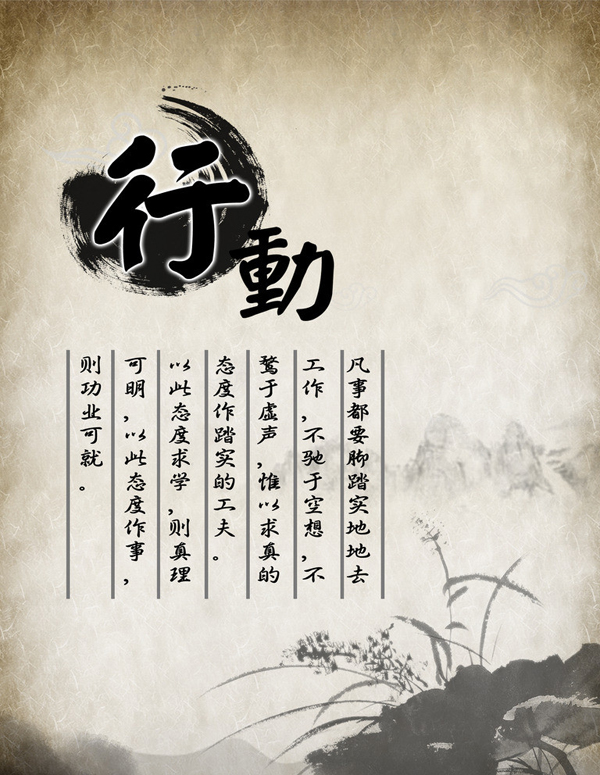 行動
凡事都要脚踏实地地去
工作，不驰于空想，不
鹜于虚声，惟以求真的
态度作踏实的工夫。
以此态度求学，则真理
可明，以此态度作事，
则功业可就。